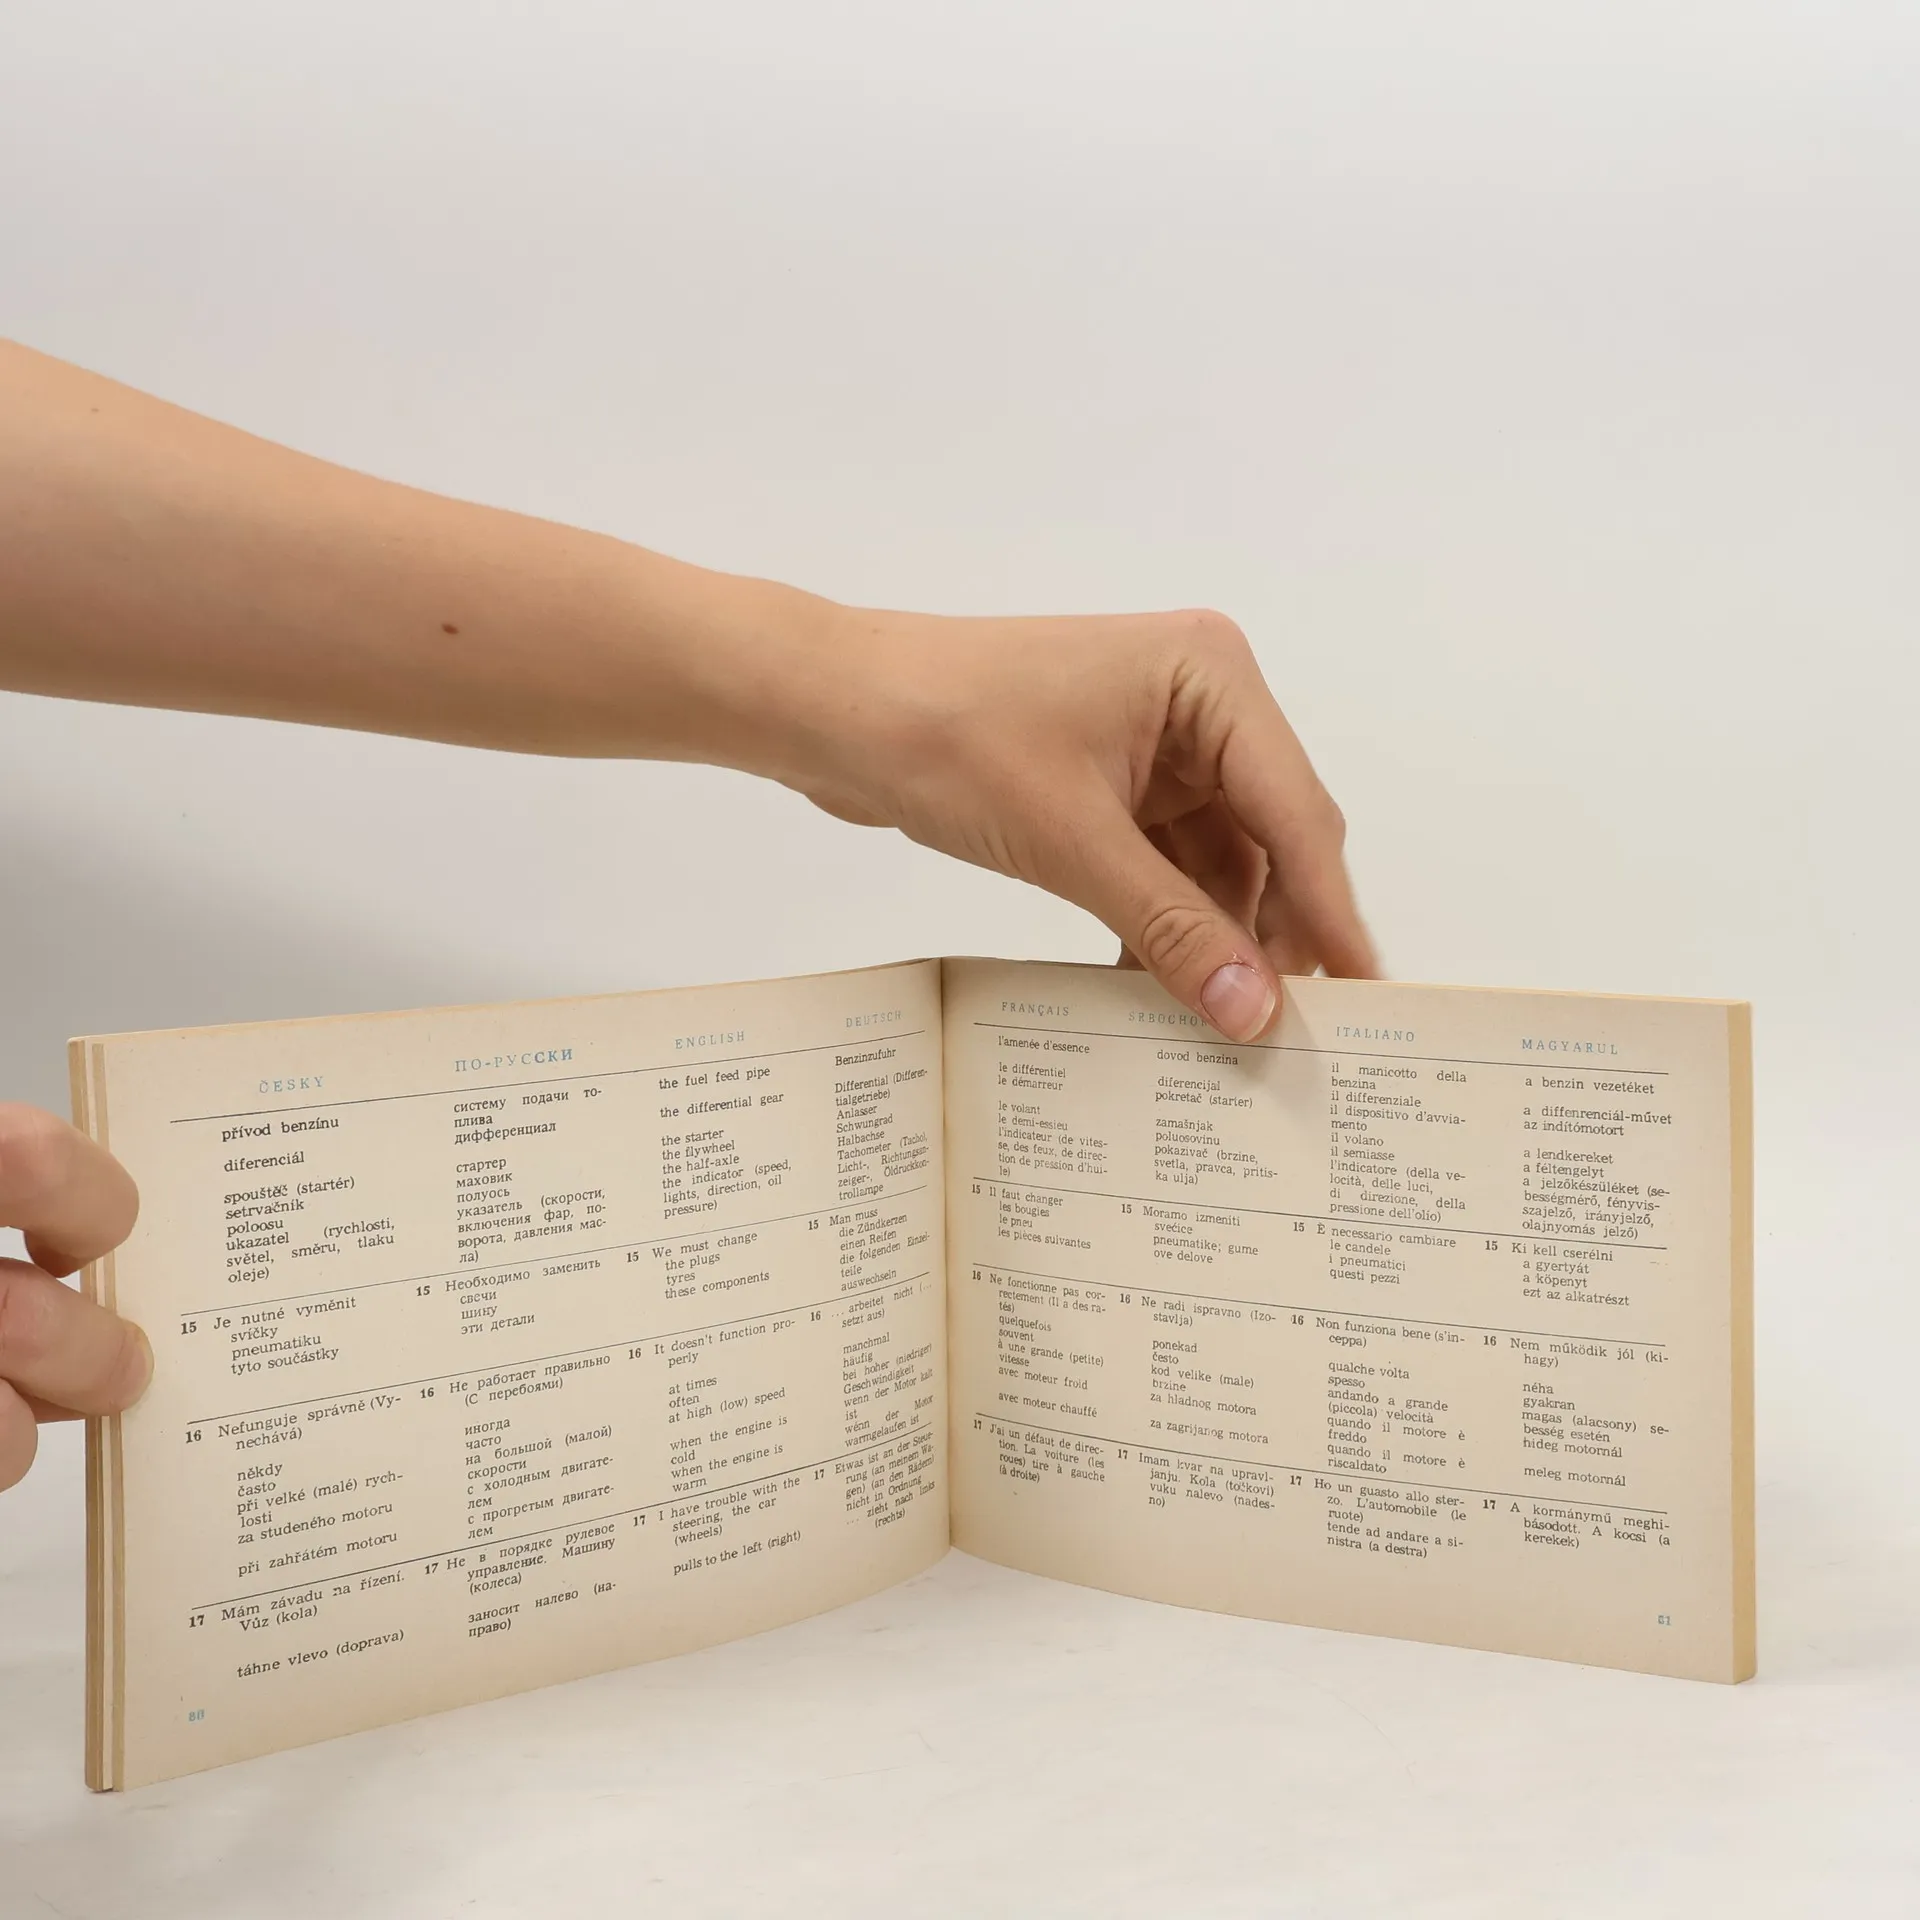 ČESKY
přívod benzínu
diferenciál
spouštěč (startér)
setrvačník
poloosu
ukazatel (rychlosti,
světel, směru, tlaku
oleje)
15 Je nutné vyměnit
svíčky
pneumatiku
tyto součástky
16 Nefunguje správně (Vy-
nechává)
někdy
často
při velké (malé) rych-
losti
za studeného motoru
při zahřátém motoru
17 Mám závadu na řízení.
Vůz (kola)
táhne vlevo (doprava)
ПО-РУССКИ
систему подачи то-
плива
дифференциал
стартер
маховик
полуось
указатель (скорости,
включения фар, по-
ворота, давления мас-
ла)
15 Необходимо заменить
свечи
шину
эти детали
16 Не работает правильно
(С перебоями)
иногда
часто
на большой (малой)
скорости
с холодным двигате-
лем
с прогретым двигате-
лем
17 Не в порядке рулевое
управление. Машину
(колеса)
заносит налево (на-
право)
ENGLISH
the fuel feed pipe
the differential gear
the starter
the flywheel
the half-axle
the indicator (speed,
lights, direction, oil
pressure)
15 We must change
the plugs
tyres
these components
16 It doesn't function pro-
perly
at times
often
at high (low) speed
when the engine is
cold
when the engine is
warm
17 I have trouble with the
steering, the car
(wheels)
pulls to the left (right)
DEUTSCH
Benzinzufuhr
Differential (Differen-
tialgetriebe)
Anlasser
Schwungrad
Halbachse
Tachometer (Tacho),
Licht-, Richtungsan-
zeiger-, Öldruckkon-
trollampe
15 Man muss
die Zündkerzen
einen Reifen
die folgenden Einzel-
teile
auswechseln
16 ... arbeitet nicht (...
setzt aus)
manchmal
häufig
bei hoher (niedriger)
Geschwindigkeit
wenn der Motor kalt
ist
wenn der Motor
warmgelaufen ist
17 Etwas ist an der Steue-
rung (an meinem Wa-
gen) (an den Rädern)
nicht in Ordnung
... zieht nach links
(rechts)
88
FRANÇAIS
l'amenée d'essence
le différentiel
le démarreur
le volant
le demi-essieu
l'indicateur (de vites-
se, des feux, de direc-
tion de pression d'hui-
le)
15 Il faut changer
les bougies
le pneu
les pièces suivantes
16 Ne fonctionne pas cor-
rectement (Il a des ra-
tés)
quelquefois
souvent
à une grande (petite)
vitesse
avec moteur froid
avec moteur chauffé
17 J'ai un défaut de direc-
tion. La voiture (les
roues) tire à gauche
(à droite)
SRBOCHOR
dovod benzina
diferencijal
pokretač (starter)
zamašnjak
poluosovinu
pokazivač (brzine,
svetla, pravca, pritis-
ka ulja)
15 Moramo izmeniti
svećice
pneumatike; gume
ove delove
16 Ne radi ispravno (Izo-
stavlja)
ponekad
često
kod velike (male)
brzine
za hladnog motora
za zagrijanog motora
17 Imam kvar na upravl-
janju. Kola (točkovi)
vuku nalevo (nades-
no)
ITALIANO
il manicotto della
benzina
il differenziale
il dispositivo d'avvia-
mento
il volano
il semiasse
l'indicatore (della ve-
locità, delle luci,
di direzione, della
pressione dell'olio)
15 È necessario cambiare
le candele
i pneumatici
questi pezzi
16 Non funziona bene (s'in-
ceppa)
qualche volta
spesso
andando a grande
(piccola) velocità
quando il motore è
freddo
quando il motore è
riscaldato
17 Ho un guasto allo ster-
zo. L'automobile (le
ruote)
tende ad andare a si-
nistra (a destra)
MAGYARUL
a benzin vezetéket
a diffenrenciál-művet
az indítómotort
a lendkereket
a féltengelyt
a jelzőkészüléket (se-
bességmérő, fényvis-
szajelző, irányjelző,
olajnyomás jelző)
15 Ki kell cserélni
a gyertyát
a köpenyt
ezt az alkatrészt
16 Nem működik jól (ki-
hagy)
néha
gyakran
magas (alacsony) se-
besség esetén
hideg motornál
meleg motornál
17 A kormánymű meghi-
básodott. A kocsi (a
kerekek)